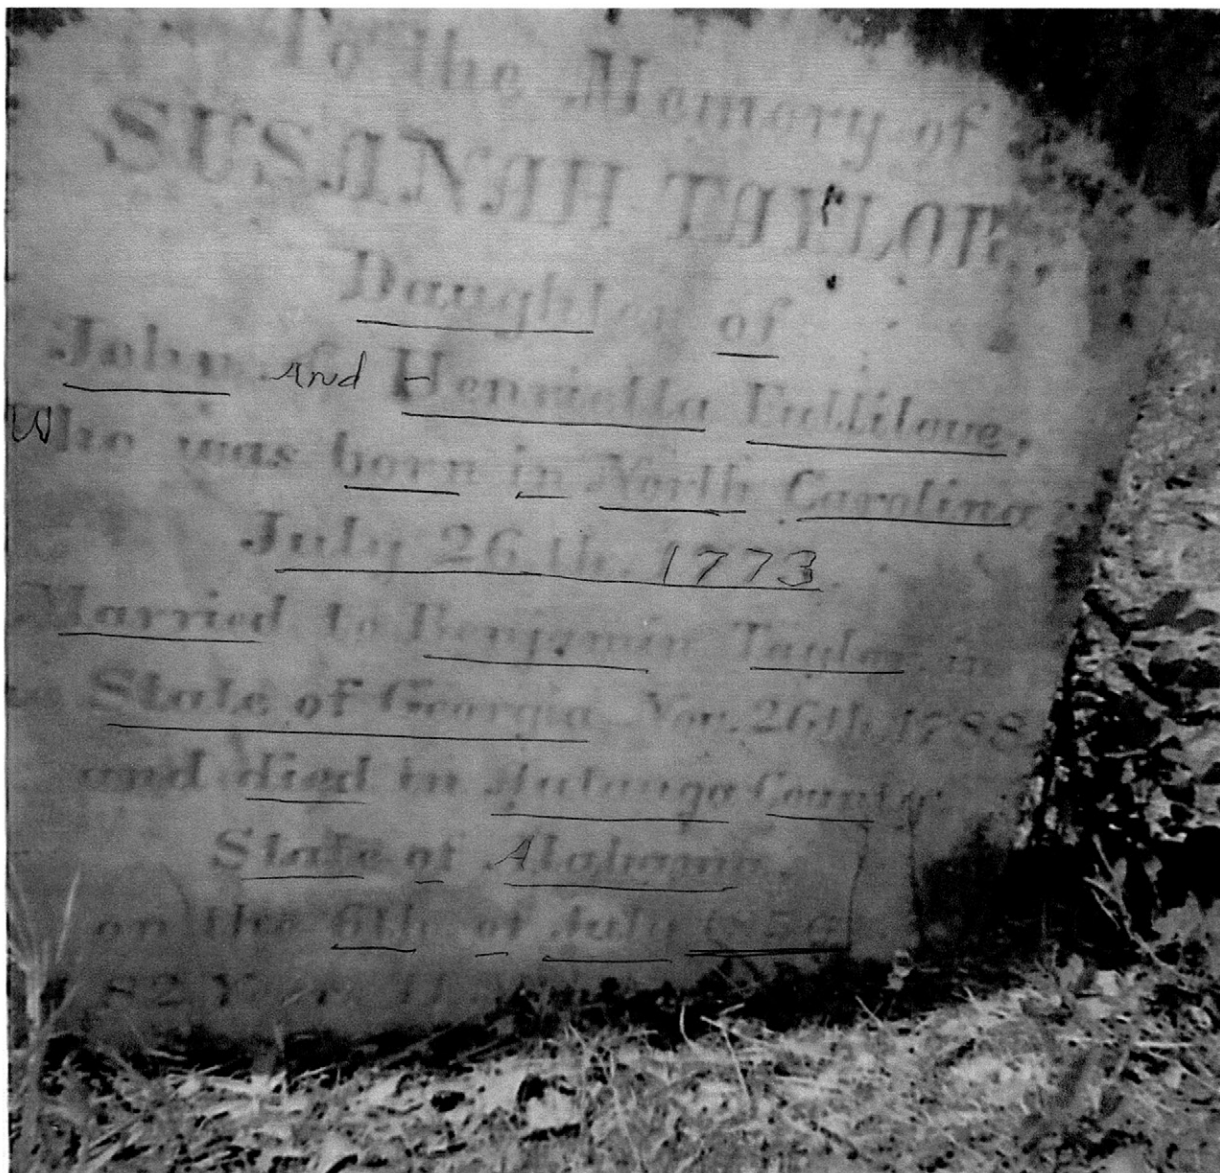 To the Memory of
SUSANAH TAYLOR,
Daughter of
John And Henrietta Fullilove,
Who was born in North Carolina
July 26th, 1773
Married to Benjamin Taylor in
State of Georgia Nov. 26th, 1788
and died in Autauga County
State of Alabama,
on the 6th of July 1856
82 Y